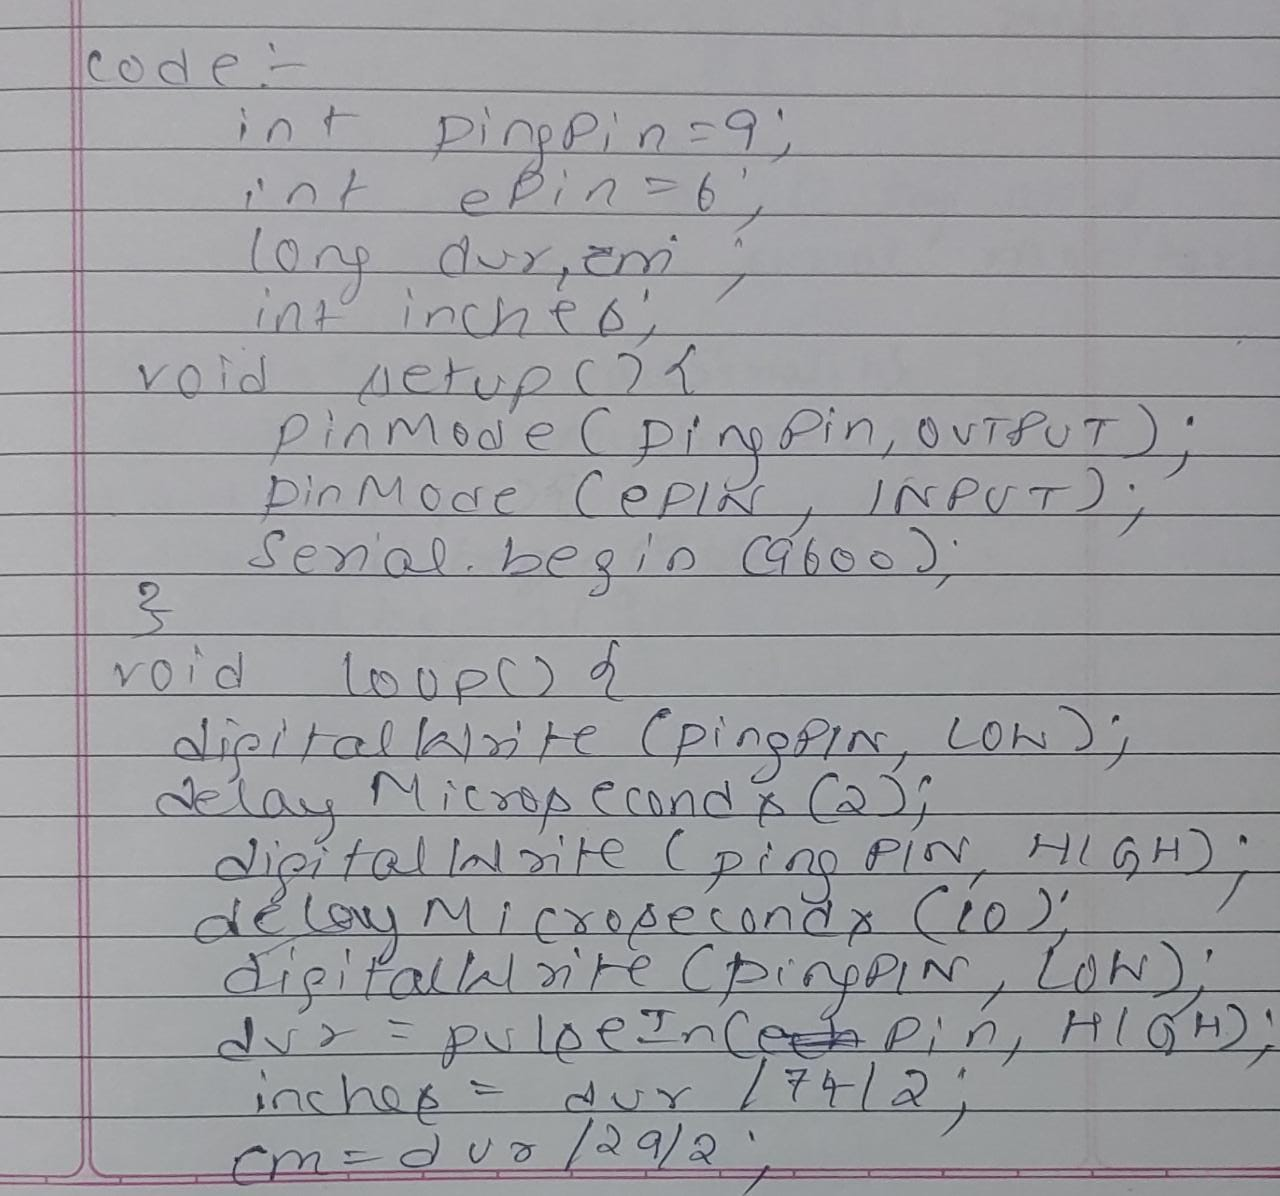 code:-
int pingPin=9;
int ePin=6;
long dur,cm;
int inches;
void setup(){
pinMode(pingPin, OUTPUT);
pinMode (ePIN, INPUT);
Serial.begin (9600);
}
void loop() {
digitalWrite (pingPIN, LOW);
delay Microseconds (2);
digitalWrite (pingPIN, HIGH);
delay Microseconds (10);
digitalWrite (pingPIN, LOW);
dur = pulseIn(e Pin, HIGH);
inches = dur /74/2;
cm=dur/29/2;